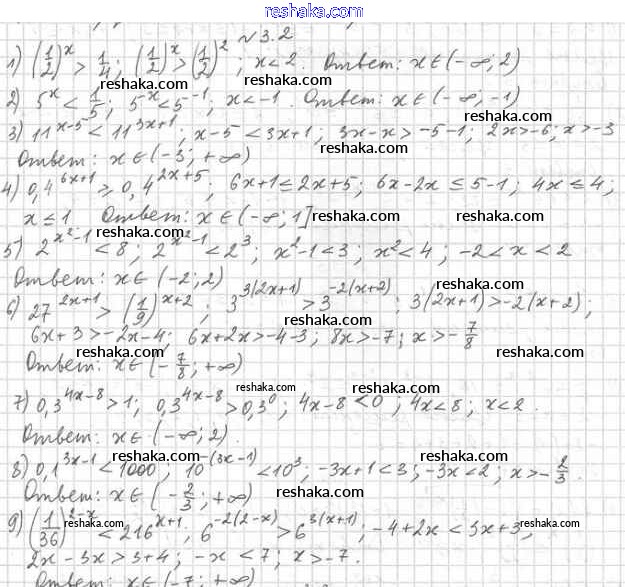 reshaka.com
№3.2
1) (1/2)^x > 1/4; (1/2)^x > (1/2)^2; x < 2. Ответ: x ∈ (-∞; 2)
reshaka.com reshaka.com
2) 5^x < 1/5; 5^x < 5^-1; x < -1. Ответ: x ∈ (-∞; -1)
reshaka.com
3) 11^(x-5) < 11^(3x+1); x-5 < 3x+1; 3x-x > -5-1; 2x > -6; x > -3
reshaka.com reshaka.com
Ответ: x ∈ (-3; +∞)
4) 0,4^(6x+1) ⩾ 0,4^(2x+5); 6x+1 ≤ 2x+5; 6x-2x ≤ 5-1; 4x ≤ 4;
x ≤ 1 Ответ: x ∈ (-∞; 1] reshaka.com reshaka.com
5) 2^(x^2-1) < 8; 2^(x^2-1) < 2^3; x^2-1 < 3; x^2 < 4; -2 < x < 2
reshaka.com
Ответ: x ∈ (-2; 2)
reshaka.com
6) 27^(2x+1) > (1/9)^(x+2); 3^(3(2x+1)) > 3^(-2(x+2)); 3(2x+1) > -2(x+2);
reshaka.com
6x+3 > -2x-4; 6x+2x > -4-3; 8x > -7; x > -7/8
reshaka.com reshaka.com
Ответ: x ∈ (-7/8; +∞)
reshaka.com reshaka.com
7) 0,3^(4x-8) > 1; 0,3^(4x-8) > 0,3^0; 4x-8 < 0; 4x < 8; x < 2.
Ответ: x ∈ (-∞; 2).
reshaka.com reshaka.com
8) 0,1^(3x-1) < 1000; 10^(-(3x-1)) < 10^3; -3x+1 < 3; -3x < 2; x > -2/3.
Ответ: x ∈ (-2/3; +∞) reshaka.com
9) (1/36)^(2-x) < 216^(x+1); 6^(-2(2-x)) > 6^(3(x+1)); -4+2x < 3x+3;
reshaka.com reshaka.com reshaka.com
2x-3x > 3+4; -x < 7; x > -7.
reshaka.com
Ответ: x ∈ (-7; +∞)